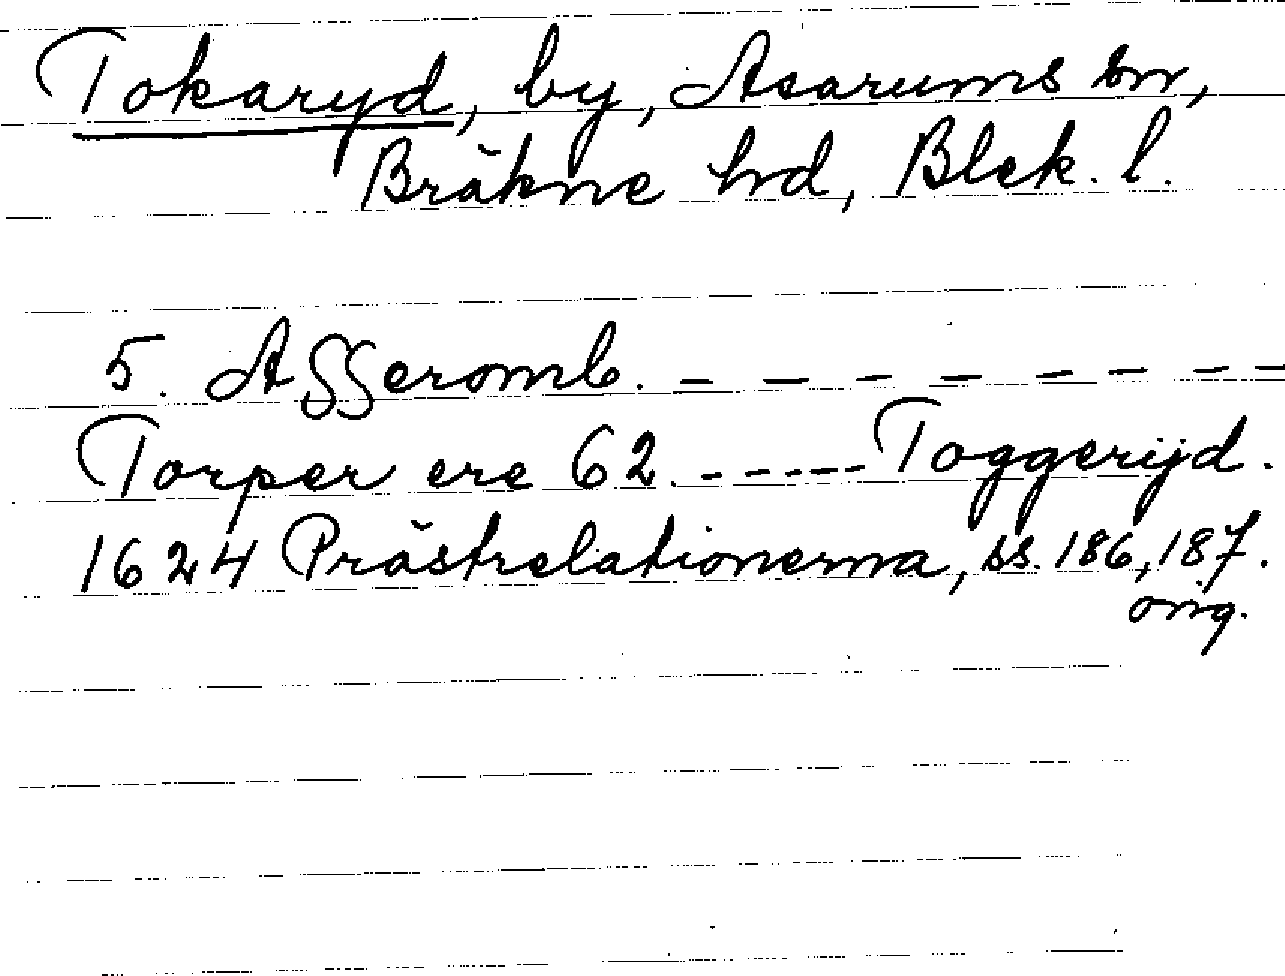 Tokaryd, by, Asarums sn,
Bräkne hd, Blek. l.
5. Asseromb. – – – – – – – –
Torper ere 62. ----- Toggerijd.
1624 Prästrelationerna, ss. 186, 187.
orig.